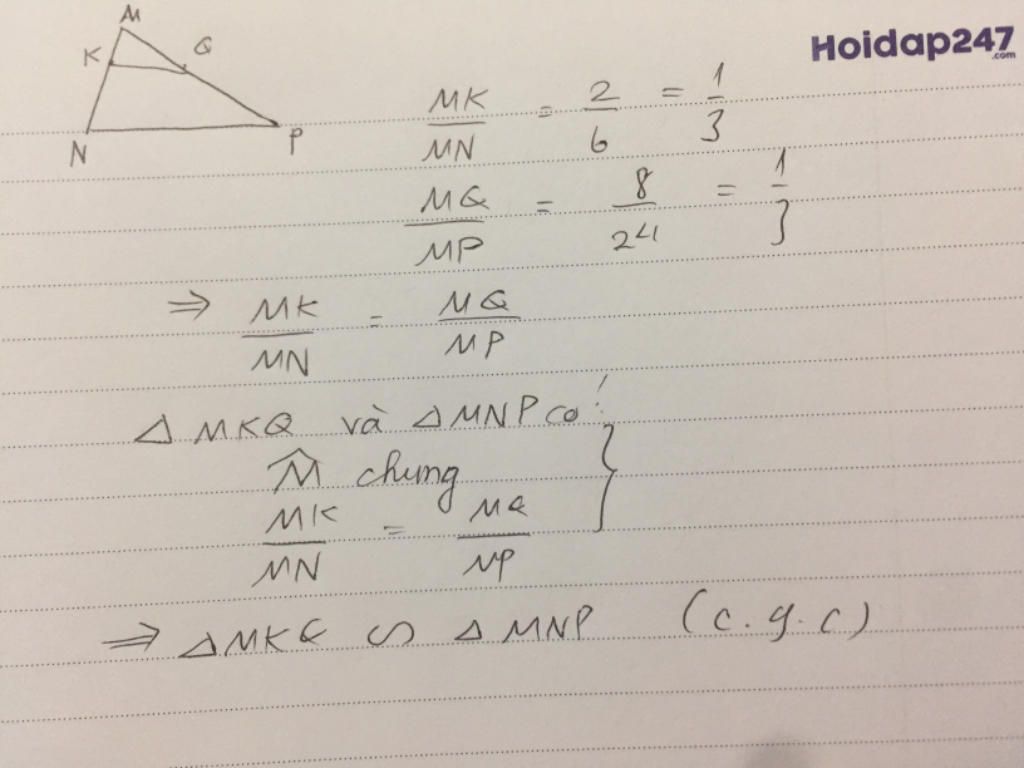 M
K
Q
N
P
Hoidap247
.com
MK/MN = 2/6 = 1/3
MQ/MP = 8/24 = 1/3
⇒ MK/MN = MQ/MP
△MKQ và △MNP có:
M̂ chung
MK/MN = MQ/MP }
⇒ △MKQ ∽ △MNP (c.g.c)